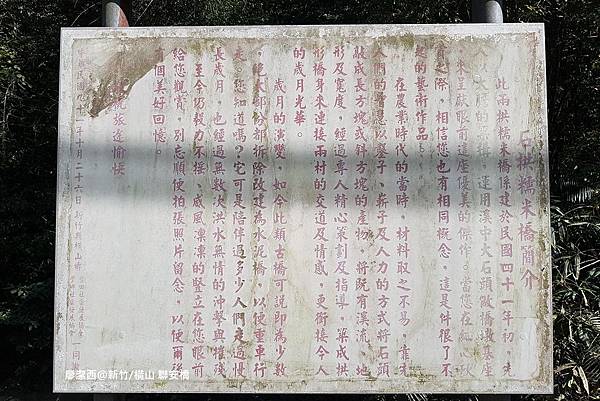 石拱糯米橋簡介
此兩拱糯米橋係建於民國四十一年初,先
人以大膽的 運用溪中大石頭做橋墩基座
來呈獻眼前這座優美的傑作。當您在
賞之際,相信您也有相同概念,這是件很了不
起的藝術作品。
在農業時代的當時,材料取之不易,靠先
人們的智慧以鑿子、 子及人力的方式將石頭
敲成長方塊或斜方塊的產物,將既有溪流、地
形及寬度,經過專人精心策劃及指導,築成拱
形橋身來連接兩村的交通及情感,更銜接令人
的歲月光華。
歲月的演變,如今此類古橋可說即為少數
,絕大部分都拆除改建為水泥橋,以便重車行
走。您知道嗎?它可是陪伴過多少人們走過慢
長歲月,也經過無數次洪水無情的沖擊與摧殘
,至今仍毅力不搖、威風凜凜的豎立在您眼前
給您觀賞,別忘順便拍張照片留念,以便爾後
有個美好回憶。
祝旅途愉快
民國九十二年十月二十六日 新竹縣橫山鄉 同
廖潔西@新竹/橫山 聯安橋